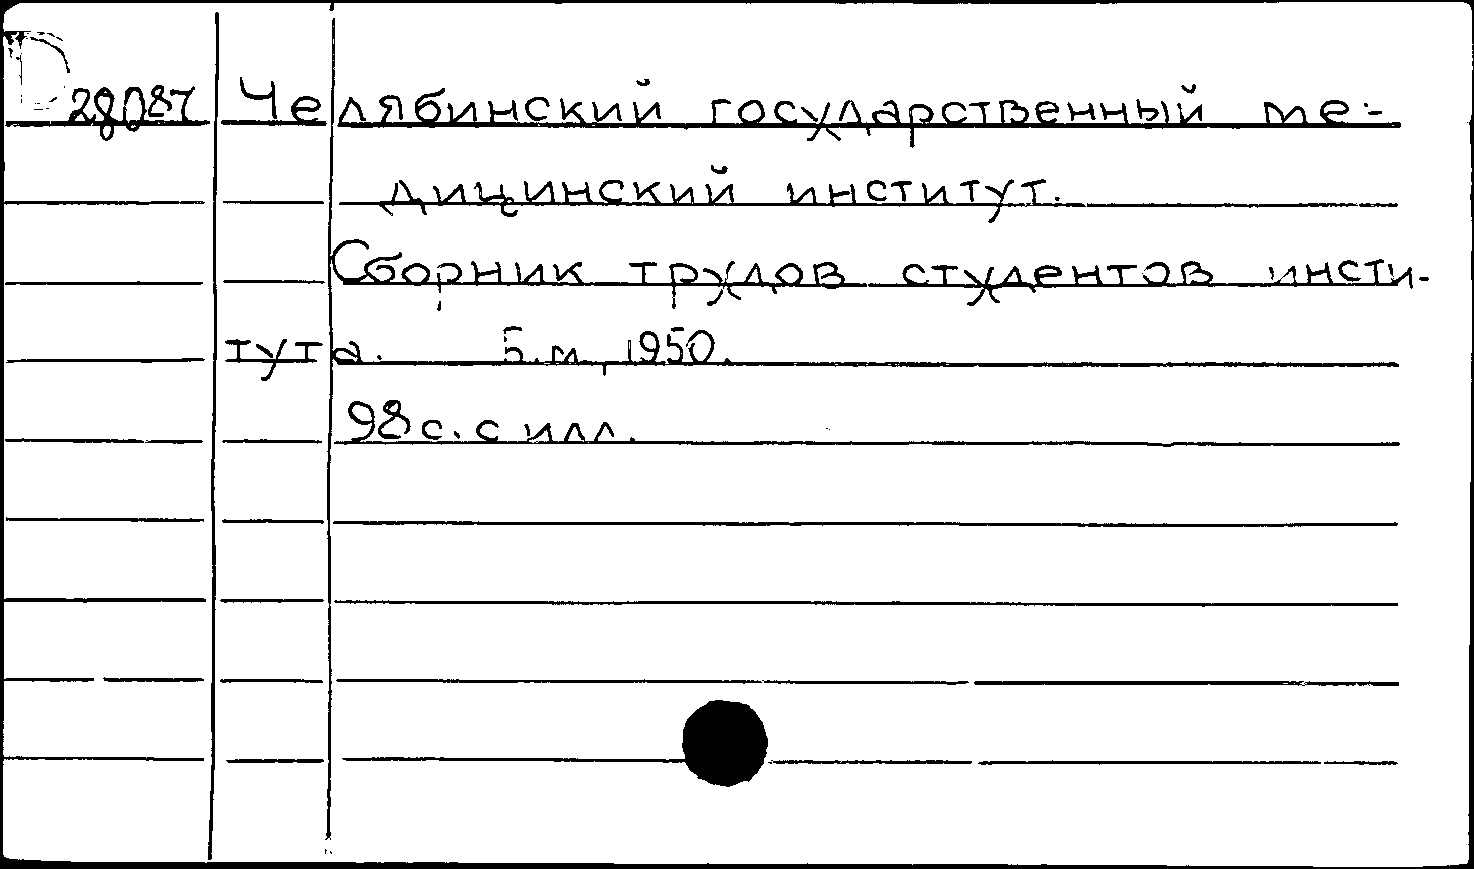 28087 Челябинский государственный ме-
дицинский институт.
Сборник трудов студентов инсти-
тута. Б.м., 1950.
98 с. с илл.